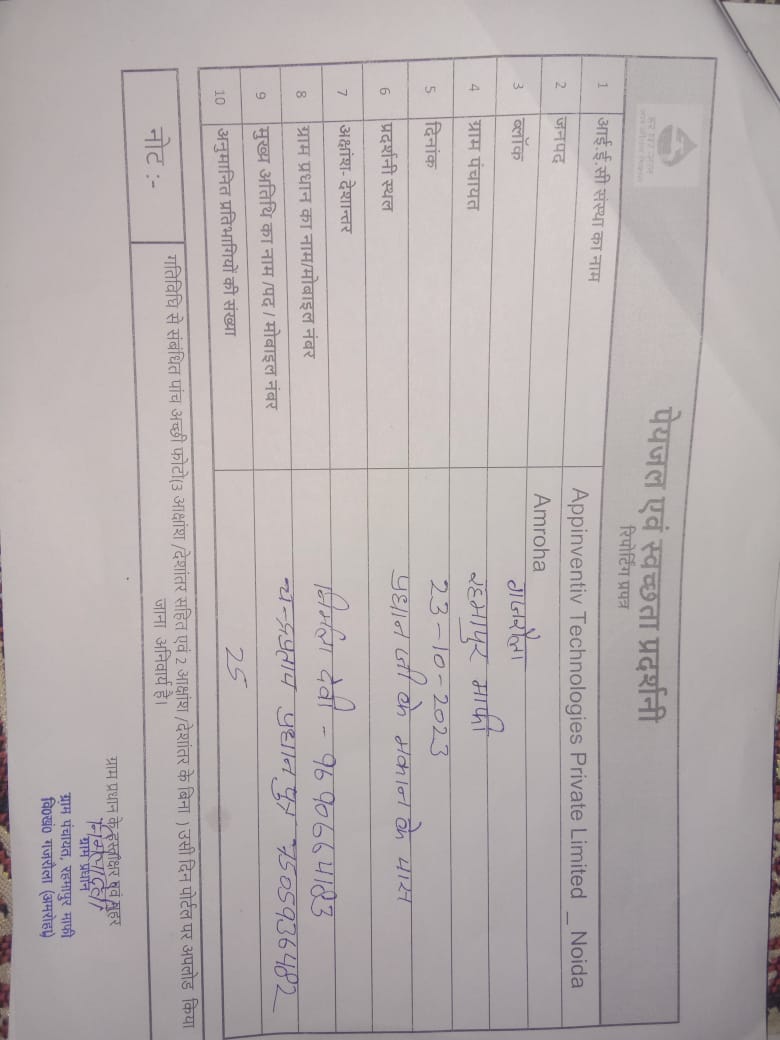 पेयजल एवं स्वच्छता प्रदर्शनी
रिपोर्टिंग प्रपत्र
1 आई.ई.सी संस्था का नाम Appinventiv Technologies Private Limited _ Noida
2 जनपद Amroha
3 ब्लॉक गजरौला
4 ग्राम पंचायत रहमापुर माफी
5 दिनांक 23-10-2023
6 प्रदर्शनी स्थल प्रधान जी के मकान के पास
7 अक्षांश- देशान्तर
8 ग्राम प्रधान का नाम/मोबाइल नंबर निर्मला देवी - 9690664183
9 मुख्य अतिथि का नाम /पद / मोबाइल नंबर प्रधान पुत्र 7505936482
10 अनुमानित प्रतिभागियों की संख्या 25
नोट :- गतिविधि से संबंधित पांच अच्छी फोटो(3 आक्षांश /देशांतर सहित एवं 2 आक्षांश /देशांतर के बिना ) उसी दिन पोर्टल पर अपलोड किया
जाना अनिवार्य है।
ग्राम प्रधान के हस्ताक्षर एवं मुहर
ग्राम प्रधान
ग्राम पंचायत, रहमापुर माफी
वि0खं0 गजरौला (अमरोहा)